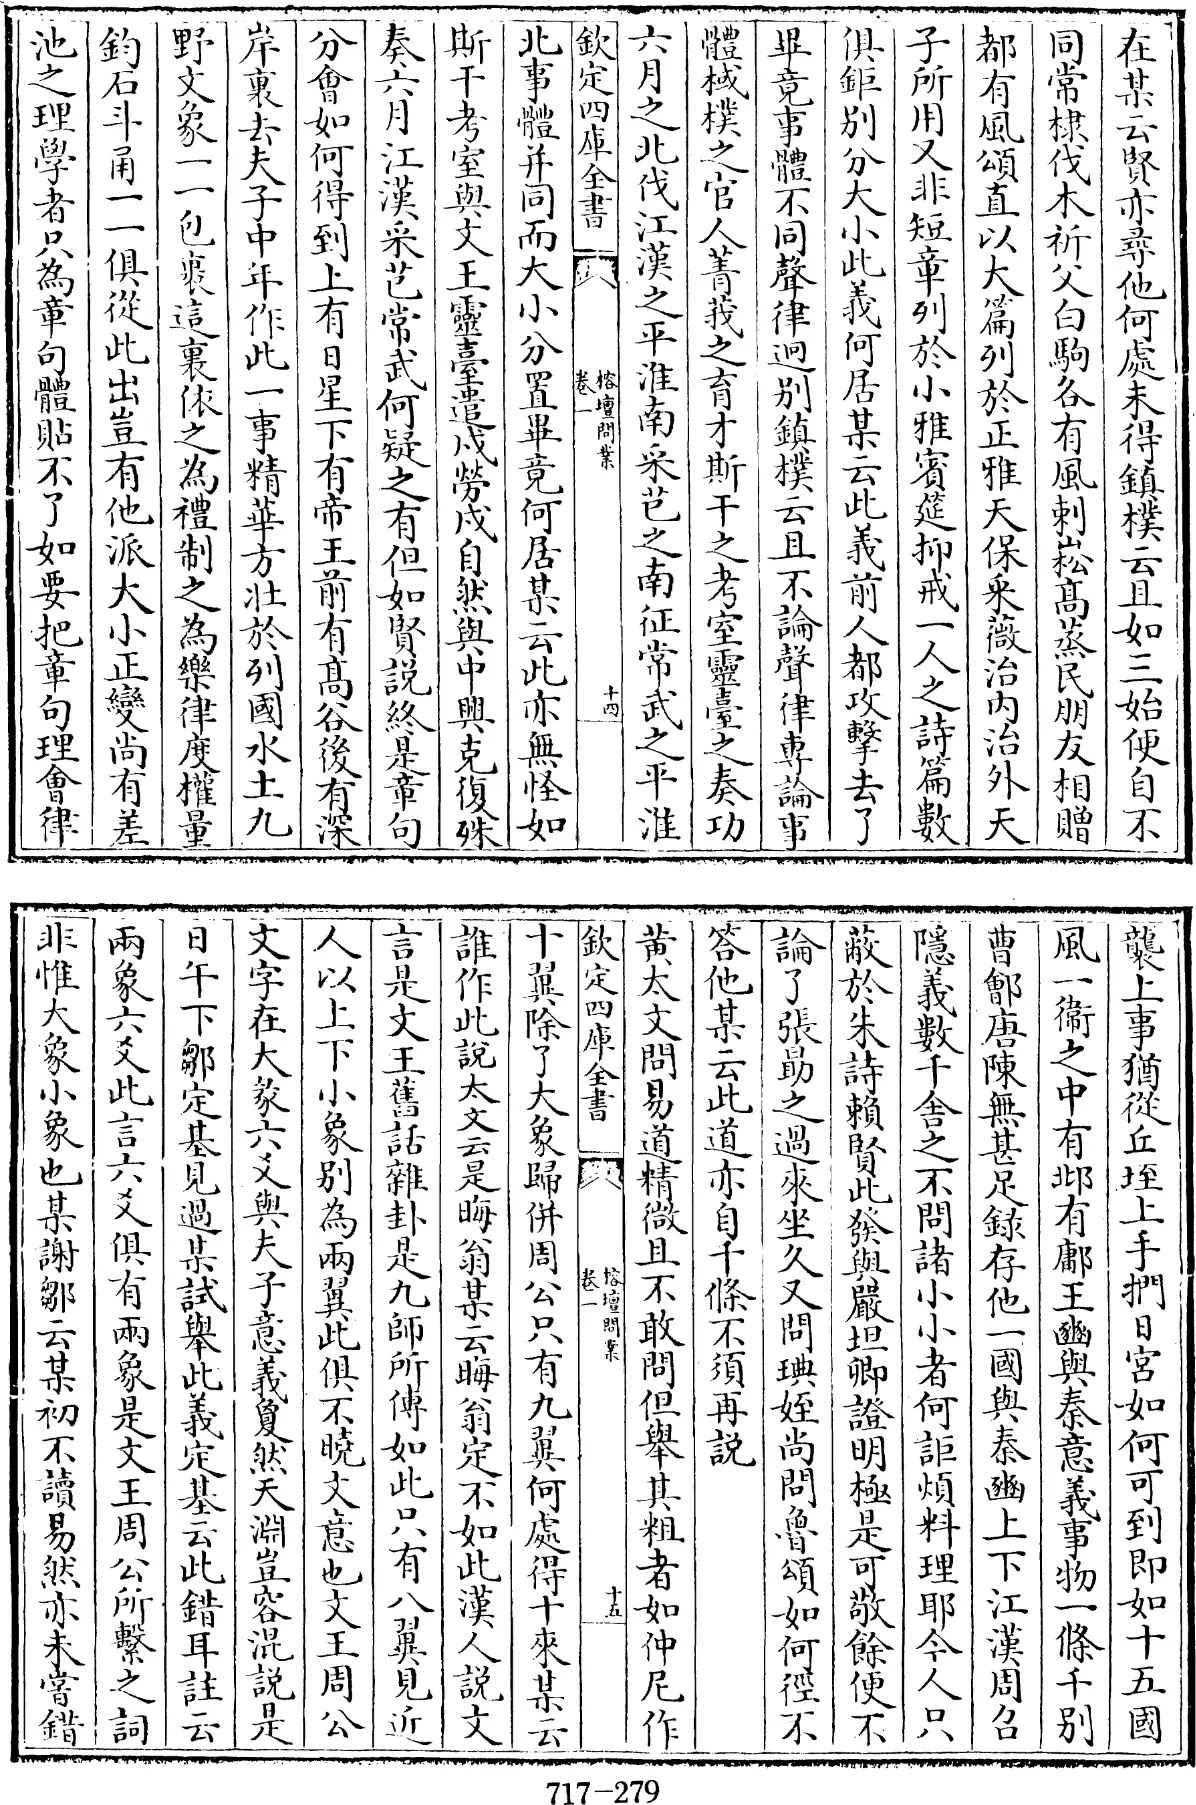 在某云賢亦尋他何處未得鎮樸云且如三始便自不
同常棣伐木祈父白駒各有風刺崧髙蒸民朋友相贈
都有風頌直以大篇列於正雅天保采薇治内治外天
子所用又非短章列於小雅賓筵抑戒一人之詩篇數
俱鉅别分大小此義何居某云此義前人都攻擊去了
畢竟事體不同聲律迥别鎮樸云且不論聲律專論事
體棫樸之官人菁莪之育才斯干之考室靈臺之奏功
六月之北伐江漢之平淮南采芑之南征常武之平淮
欽定四庫全書
榕壇問業
卷一
十四
北事體并同而大小分置畢竟何居某云此亦無怪如
斯干考室與文王靈臺遣戍勞戍自然與中興克復殊
奏六月江漢采芑常武何疑之有但如賢説終是章句
分會如何得到上有日星下有帝王前有髙谷後有深
岸裏去夫子中年作此一事精華方壯於列國水土九
野文象一一包裹這裏依之為禮制之為樂律度權量
鈞石斗甬一一俱從此出豈有他派大小正變尚有差
池之理學者只為章句體貼不了如要把章句理會律
襲上事猶從丘垤上手捫日宮如何可到即如十五國
風一衞之中有邶有鄘王豳與秦意義事物一條千别
曹鄶唐陳無甚足錄存他一國與秦豳上下江漢周召
隱義數千舍之不問諸小小者何詎煩料理耶今人只
蔽於朱詩賴賢此發與嚴坦卿證明極是可敬餘便不
論了張勗之過來坐久又問㻏姪尚問魯頌如何徑不
答他某云此道亦自千條不須再説
黄太文問易道精微且不敢問但舉其粗者如仲尼作
欽定四庫全書
榕壇問業
卷一
十五
十翼除了大象歸併周公只有九翼何處得十來某云
誰作此説太文云是晦翁某云晦翁定不如此漢人説文
言是文王舊話雜卦是九師所傳如此只有八翼見近
人以上下小象别為兩翼此俱不曉文意也文王周公
文字在大彖六爻與夫子意義夐然天淵豈容混説是
日午下鄒定基見過某試舉此義定基云此錯耳註云
兩象六爻此言六爻俱有兩象是文王周公所繫之詞
非惟大象小象也某謝鄒云某初不讀易然亦未嘗錯
717-279